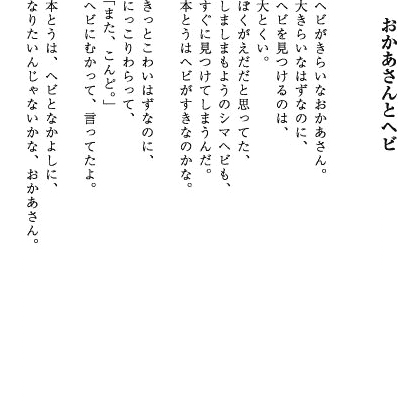 おかあさんとヘビ
ヘビがきらいなおかあさん。
大きらいなはずなのに、
ヘビを見つけるのは、
大とくい。
ぼくがえだだと思ってた、
しましまもようのシマヘビも、
すぐに見つけてしまうんだ。
本とうはヘビがすきなのかな。
きっとこわいはずなのに、
にっこりわらって、
「また、こんど。」
ヘビにむかって、言ってたよ。
本とうは、ヘビとなかよしに、
なりたいんじゃないかな、おかあさん。